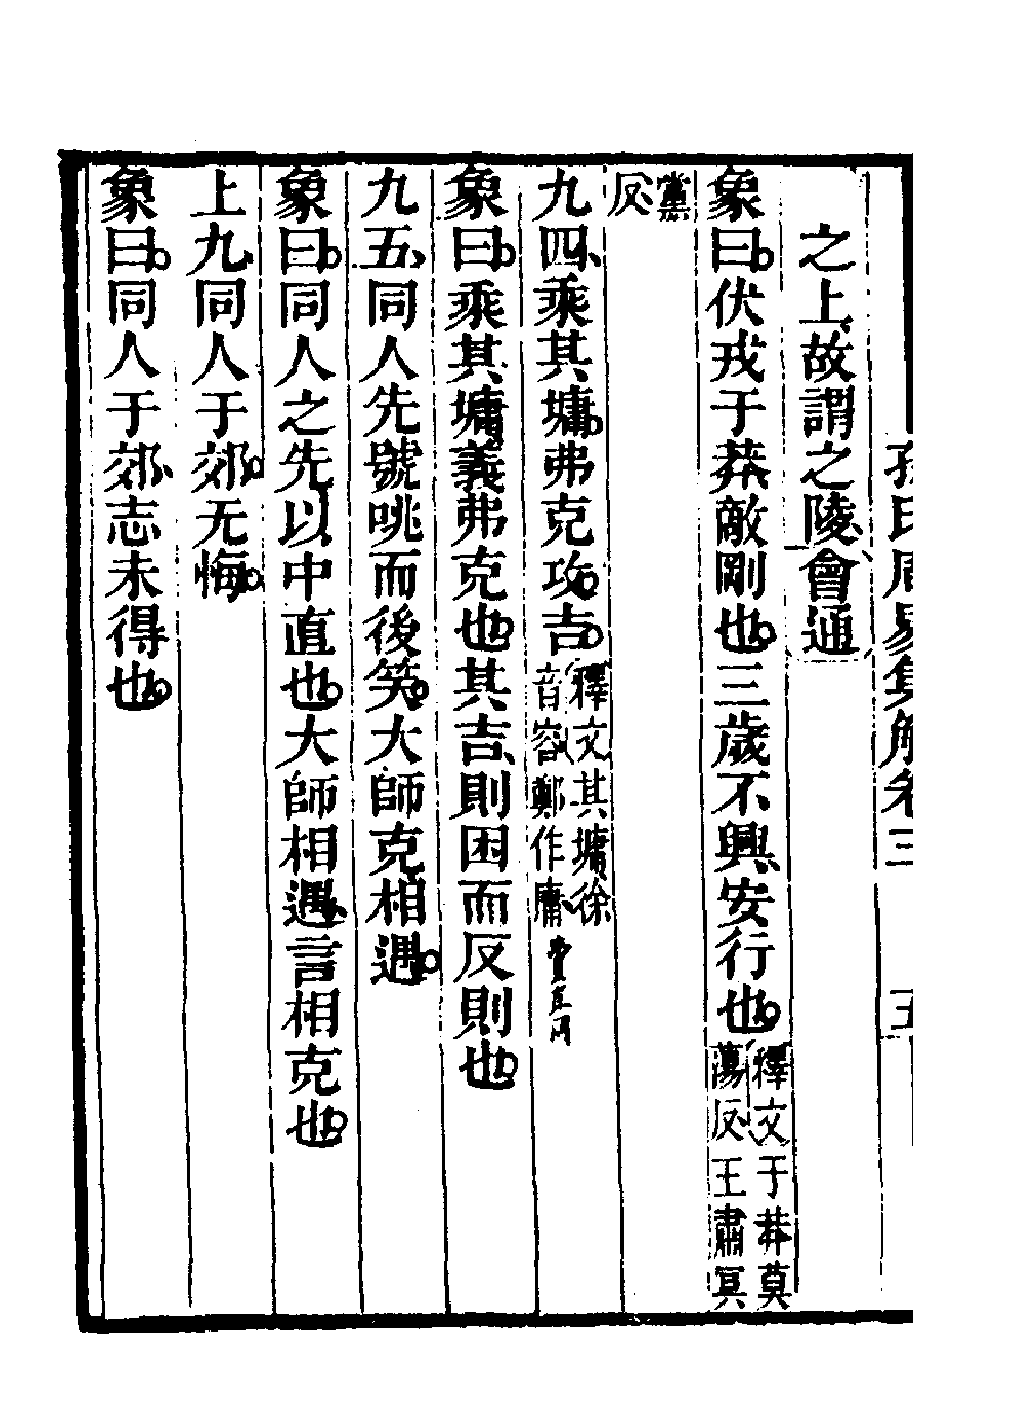 孫氏周易集解卷三 五
之上故謂之陵會通
象曰伏戎于莽敵剛也三歲不興安行也釋文于莽莫蕩反王肅冥
黨反
九四乘其墉弗克攻吉釋文其墉徐音容鄭作庸
象曰乘其墉義弗克也其吉則困而反則也
九五同人先號咷而後笑大師克相遇
象曰同人之先以中直也大師相遇言相克也
上九同人于郊无悔
象曰同人于郊志未得也